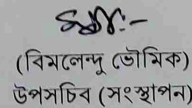 (বিমলেন্দু ভৌমিক)
উপসচিব (সংস্থাপন)